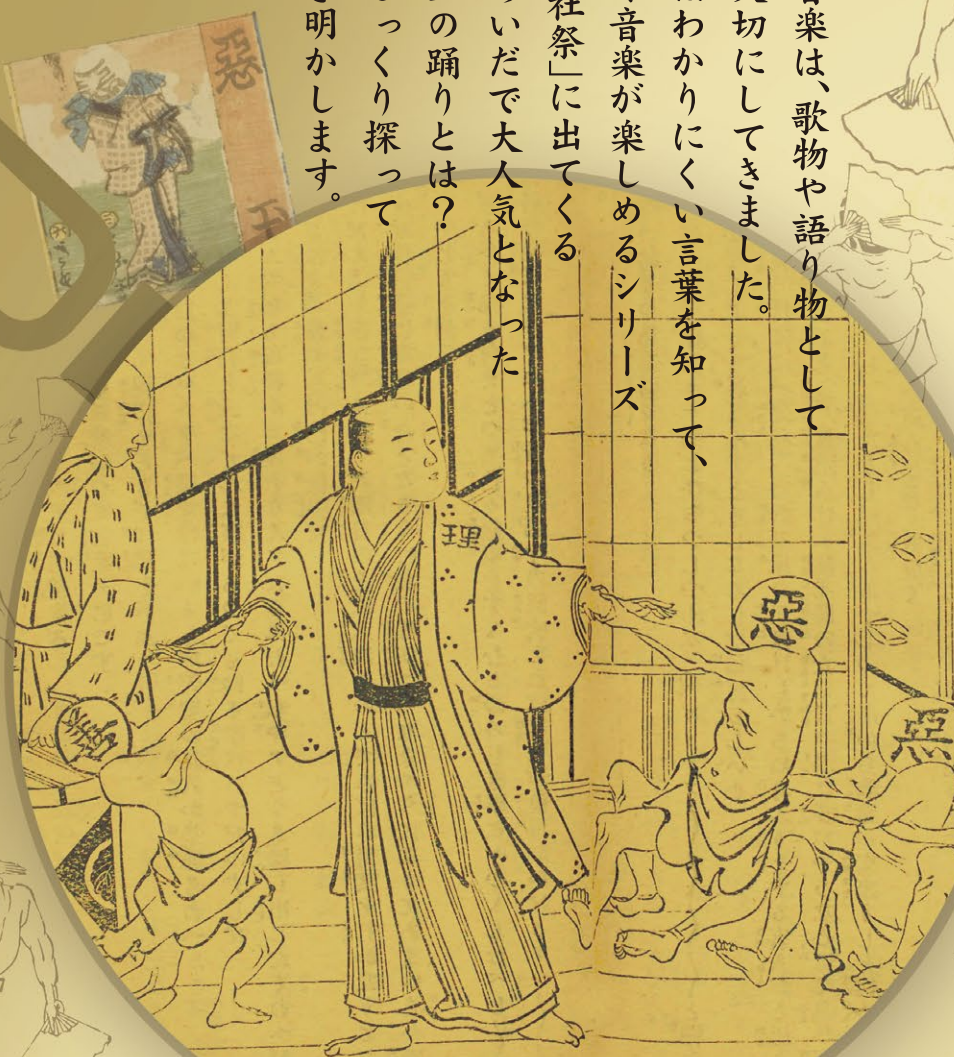 楽は、歌物や語り物として
切にしてきました。
わかりにくい言葉を知って、
音楽が楽しめるシリーズ
社祭」に出てくる
いだで大人気となった
の踊りとは？
っくり探って
明かします。
惡
理
惡
惡
善